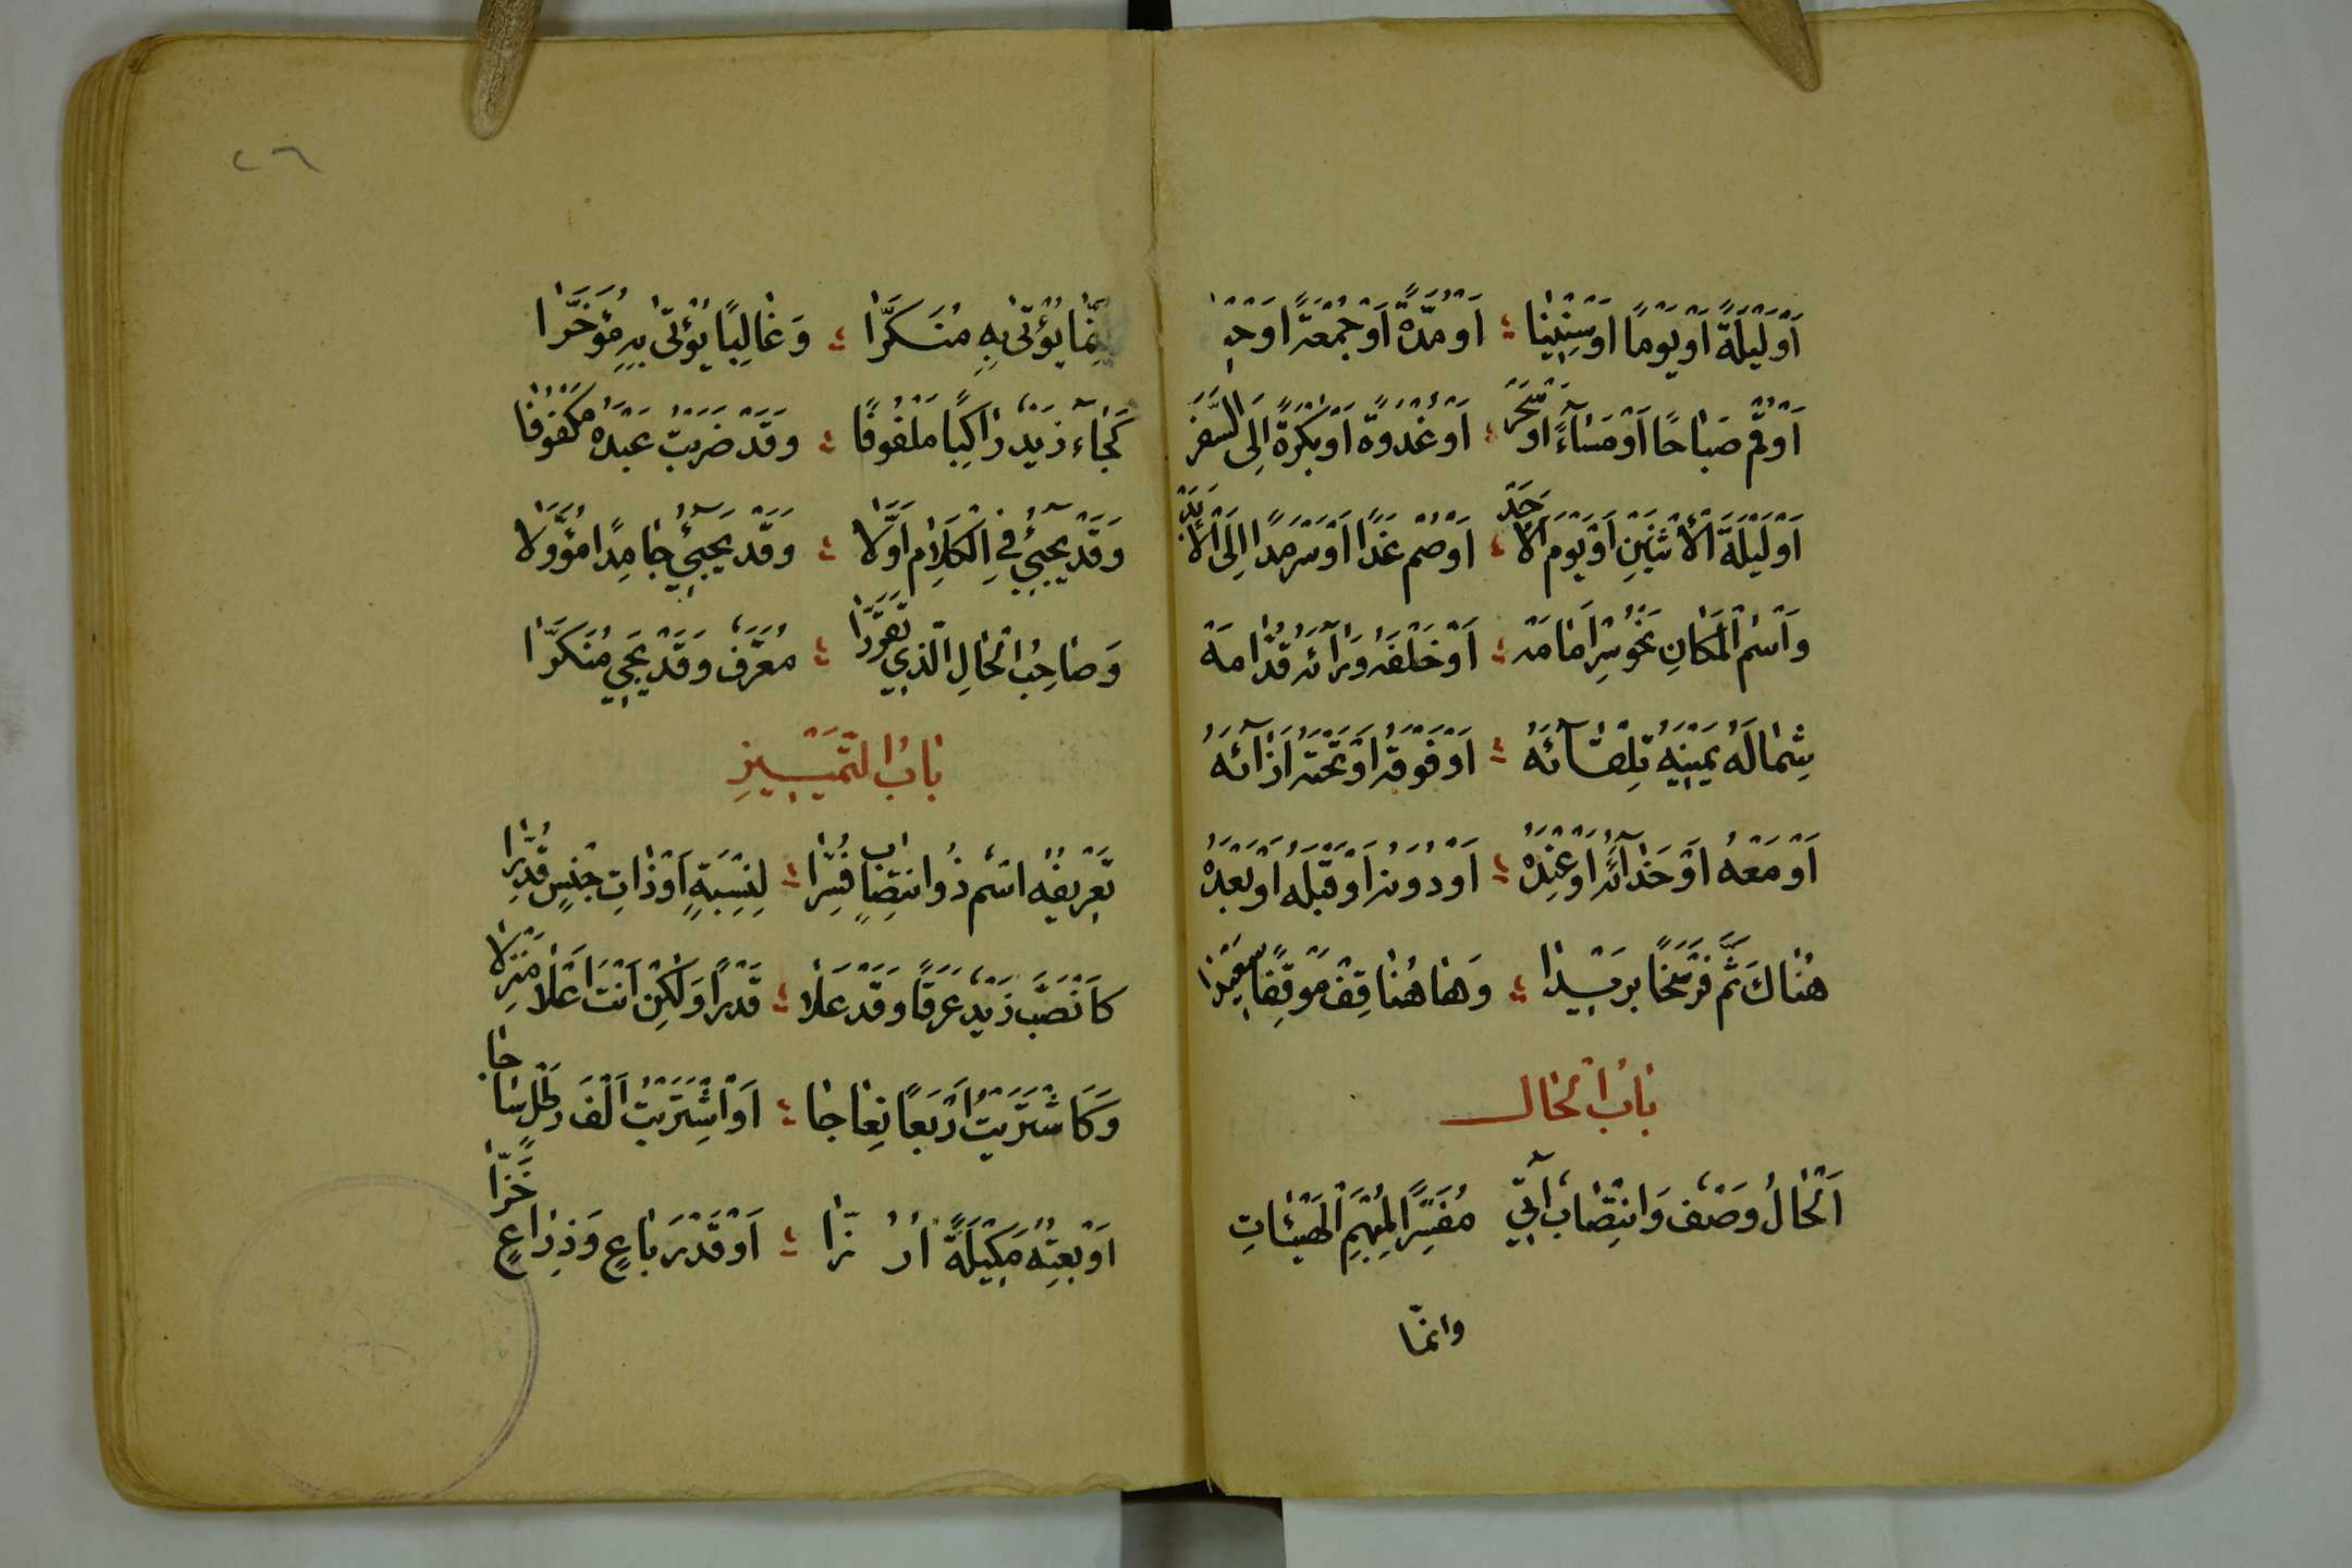 اَوْ لَيْلَةً اَوْ يَوْمًا اَوْ سِنِيْنَا ؛ اَوْ مُدَّةً اَوْ جُمْعَةً اَوْ
اَوْ قُمْ صَبَاحًا اَوْ مَسَاءً اَوْ سَحَرْ ؛ اَوْ غُدْوَةً اَوْ بُكْرَةً اِلَى السَّفَرْ
اَوْ لَيْلَةَ الْاِثْنَيْنِ اَوْ يَوْمَ الْاَحَدْ ؛ اَوْ صُمْ غَدًا اَوْ سَرْمَدًا اِلَى الْاَبَدْ
وَاسْمُ الْمَكَانِ نَحْوُ سِرْ اَمَامَهْ ؛ اَوْ خَلْفَهُ وَرَآئَهُ قُدَّامَهْ
شِمَالَهُ يَمِيْنَهُ تِلْقَآئَهُ ؛ اَوْ فَوْقَهُ اَوْ تَحْتَهُ اِزَائَهُ
اَوْ مَعْهُ اَوْ حَذَآئَهُ اَوْ عِنْدَهُ ؛ اَوْ دُوْنَهُ اَوْ قَبْلَهُ اَوْ بَعْدَهُ
هُنَاكَ ثَمَّ فَرْسَخًا بَرِيْدَا ؛ وَهَاهُنَا قِفْ مَوْقِفًا سَعِيْدَا
بَابُ الْحَالِ
اَلْحَالُ وَصْفٌ وَانْتِصَابٌ آتِيْ مُفَسِّرًا لِمُبْهَمِ الْهَيْئَاتِ
وانما
٢٦
اِنَّمَا يُؤْتٰى بِهِ مُنَكَّرَا ؛ وَغَالِبًا يُؤْتٰى بِهِ مُؤَخَّرَا
كَجَآءَ زَيْدٌ رَاكِبًا مَلْفُوفًا ؛ وَقَدْ ضَرَبْتُ عَبْدَهُ مَكْفُوْفًا
وَقَدْ يَجِيْئُ فِي الْكَلَامِ اَوَّلَا ؛ وَقَدْ يَجِيْئُ جَامِدًا مُؤَوَّلَا
وَصَاحِبُ الْحَالِ الَّذِيْ تَقَرَّرَا ؛ مُعَرَّفٌ وَقَدْ يَجِيْ مُنَكَّرَا
بَابُ التَّمْيِيْزِ
تَعْرِيْفُهُ اسْمٌ ذُو انْتِصَابٍ فَسَّرَا ؛ لِنِسْبَةٍ اَوْ ذَاتِ جِنْسٍ قُدِّرَا
كَانْصَبَّ زَيْدٌ عَرَقًا وَقَدْ عَلَا ؛ قَدْرًا وَلٰكِنْ اَنْتَ اَعْلَا مَنْزِلَا
وَكَاشْتَرَيْتُ اَرْبَعًا نِعَاجَا ؛ اَوِ اشْتَرَيْتُ اَلْفَ رَطْلٍ سَاجَا
اَوْ بِعْتُهُ مَكِيْلَةً اَرُزَّا ؛ اَوْ قَدْرَ بَاعٍ وَذِرَاعٍ خَزَّا